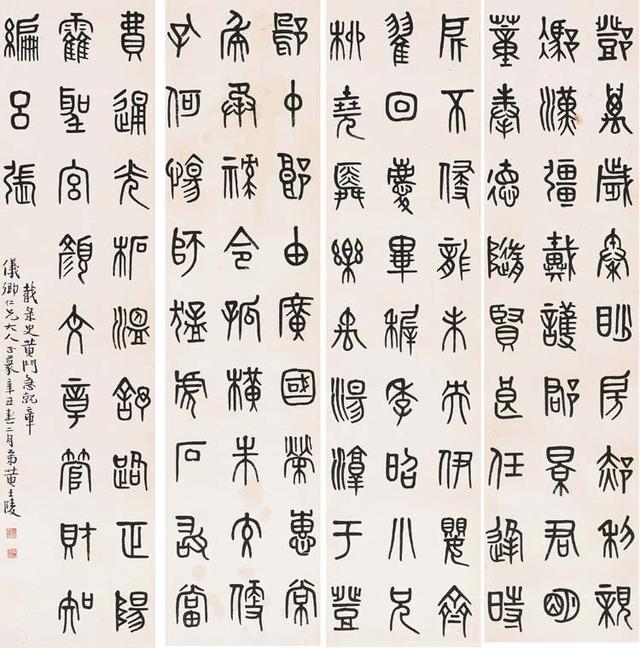 鄧萬歲秦眇房郝利親
馮漢彊戴護郡景君明
董奉德隨賢良任逢時
所不侵龍未央伊嬰齊
翟回慶畢稺季昭小兄
柳堯舜樂禹湯淳于登
中郎由廣國榮惠常
烏承祿令狐橫朱交便
孔何傷師猛虎石敢當
費通光柘溫舒路正陽
霍聖宮顏文章管財知
編呂張
史黃門急就章
儀卿仁兄大人正篆辛丑春二月弟黃士陵